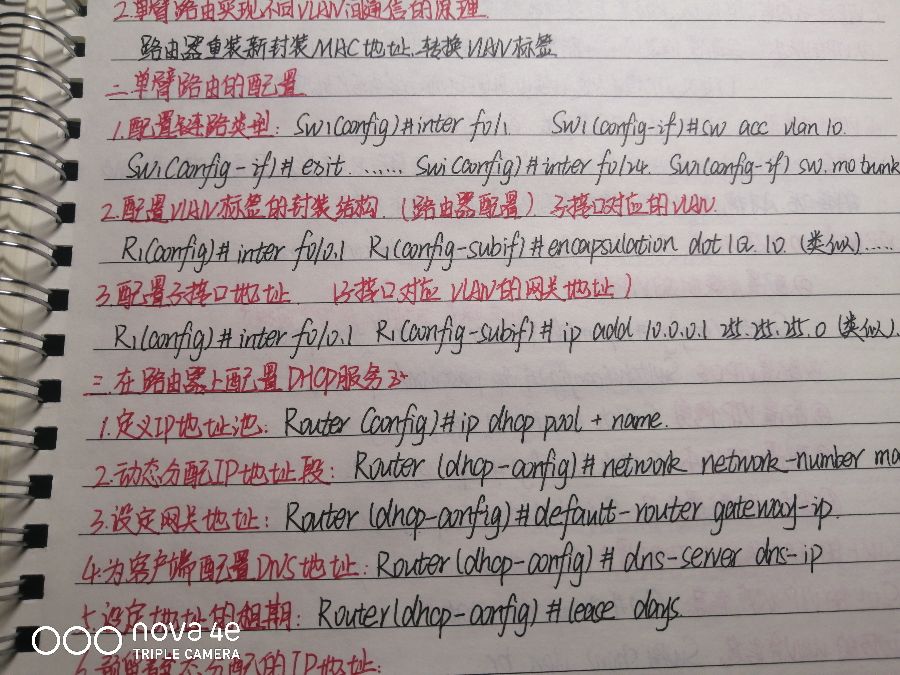 2.单臂路由实现不同VLAN间通信的原理
路由器重装新封装MAC地址、转换VLAN标签
二.单臂路由的配置
1.配置链路类型: SW1(config)#inter f0/1 SW1(config-if)#sw acc vlan 10.
SW1(config-if)# exit. ...... SW1(config)#inter f0/24. SW1(config-if) sw.mo trunk
2.配置VLAN标签的封装结构.(路由器配置) 子接口对应的VLAN.
R1(config)# inter f0/0.1 R1(config-subif)#encapsulation dot 1Q. 10 (类似).....
3.配置子接口地址. (子接口对应VLAN的网关地址)
R1(config)# inter f0/0.1 R1(config-subif)# ip add 10.0.0.1 255.255.255.0 (类似).
三.在路由器上配置DHCP服务
1.定义IP地址池: Router (config)# ip dhcp pool + name.
2.动态分配IP地址段: Router (dhcp-config)# network network-number ma
3.设定网关地址: Router (dhcp-config)#default-router gateway-ip.
4.为客户端配置DNS地址: Router(dhcp-config)# dns-server dns-ip
5.设定地址的租期: Router(dhcp-config)#lease days.
6.预留静态分配的IP地址:
nova 4e
TRIPLE CAMERA